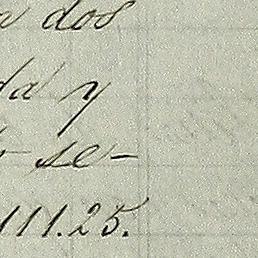 a dos
da y
se-
111.25.